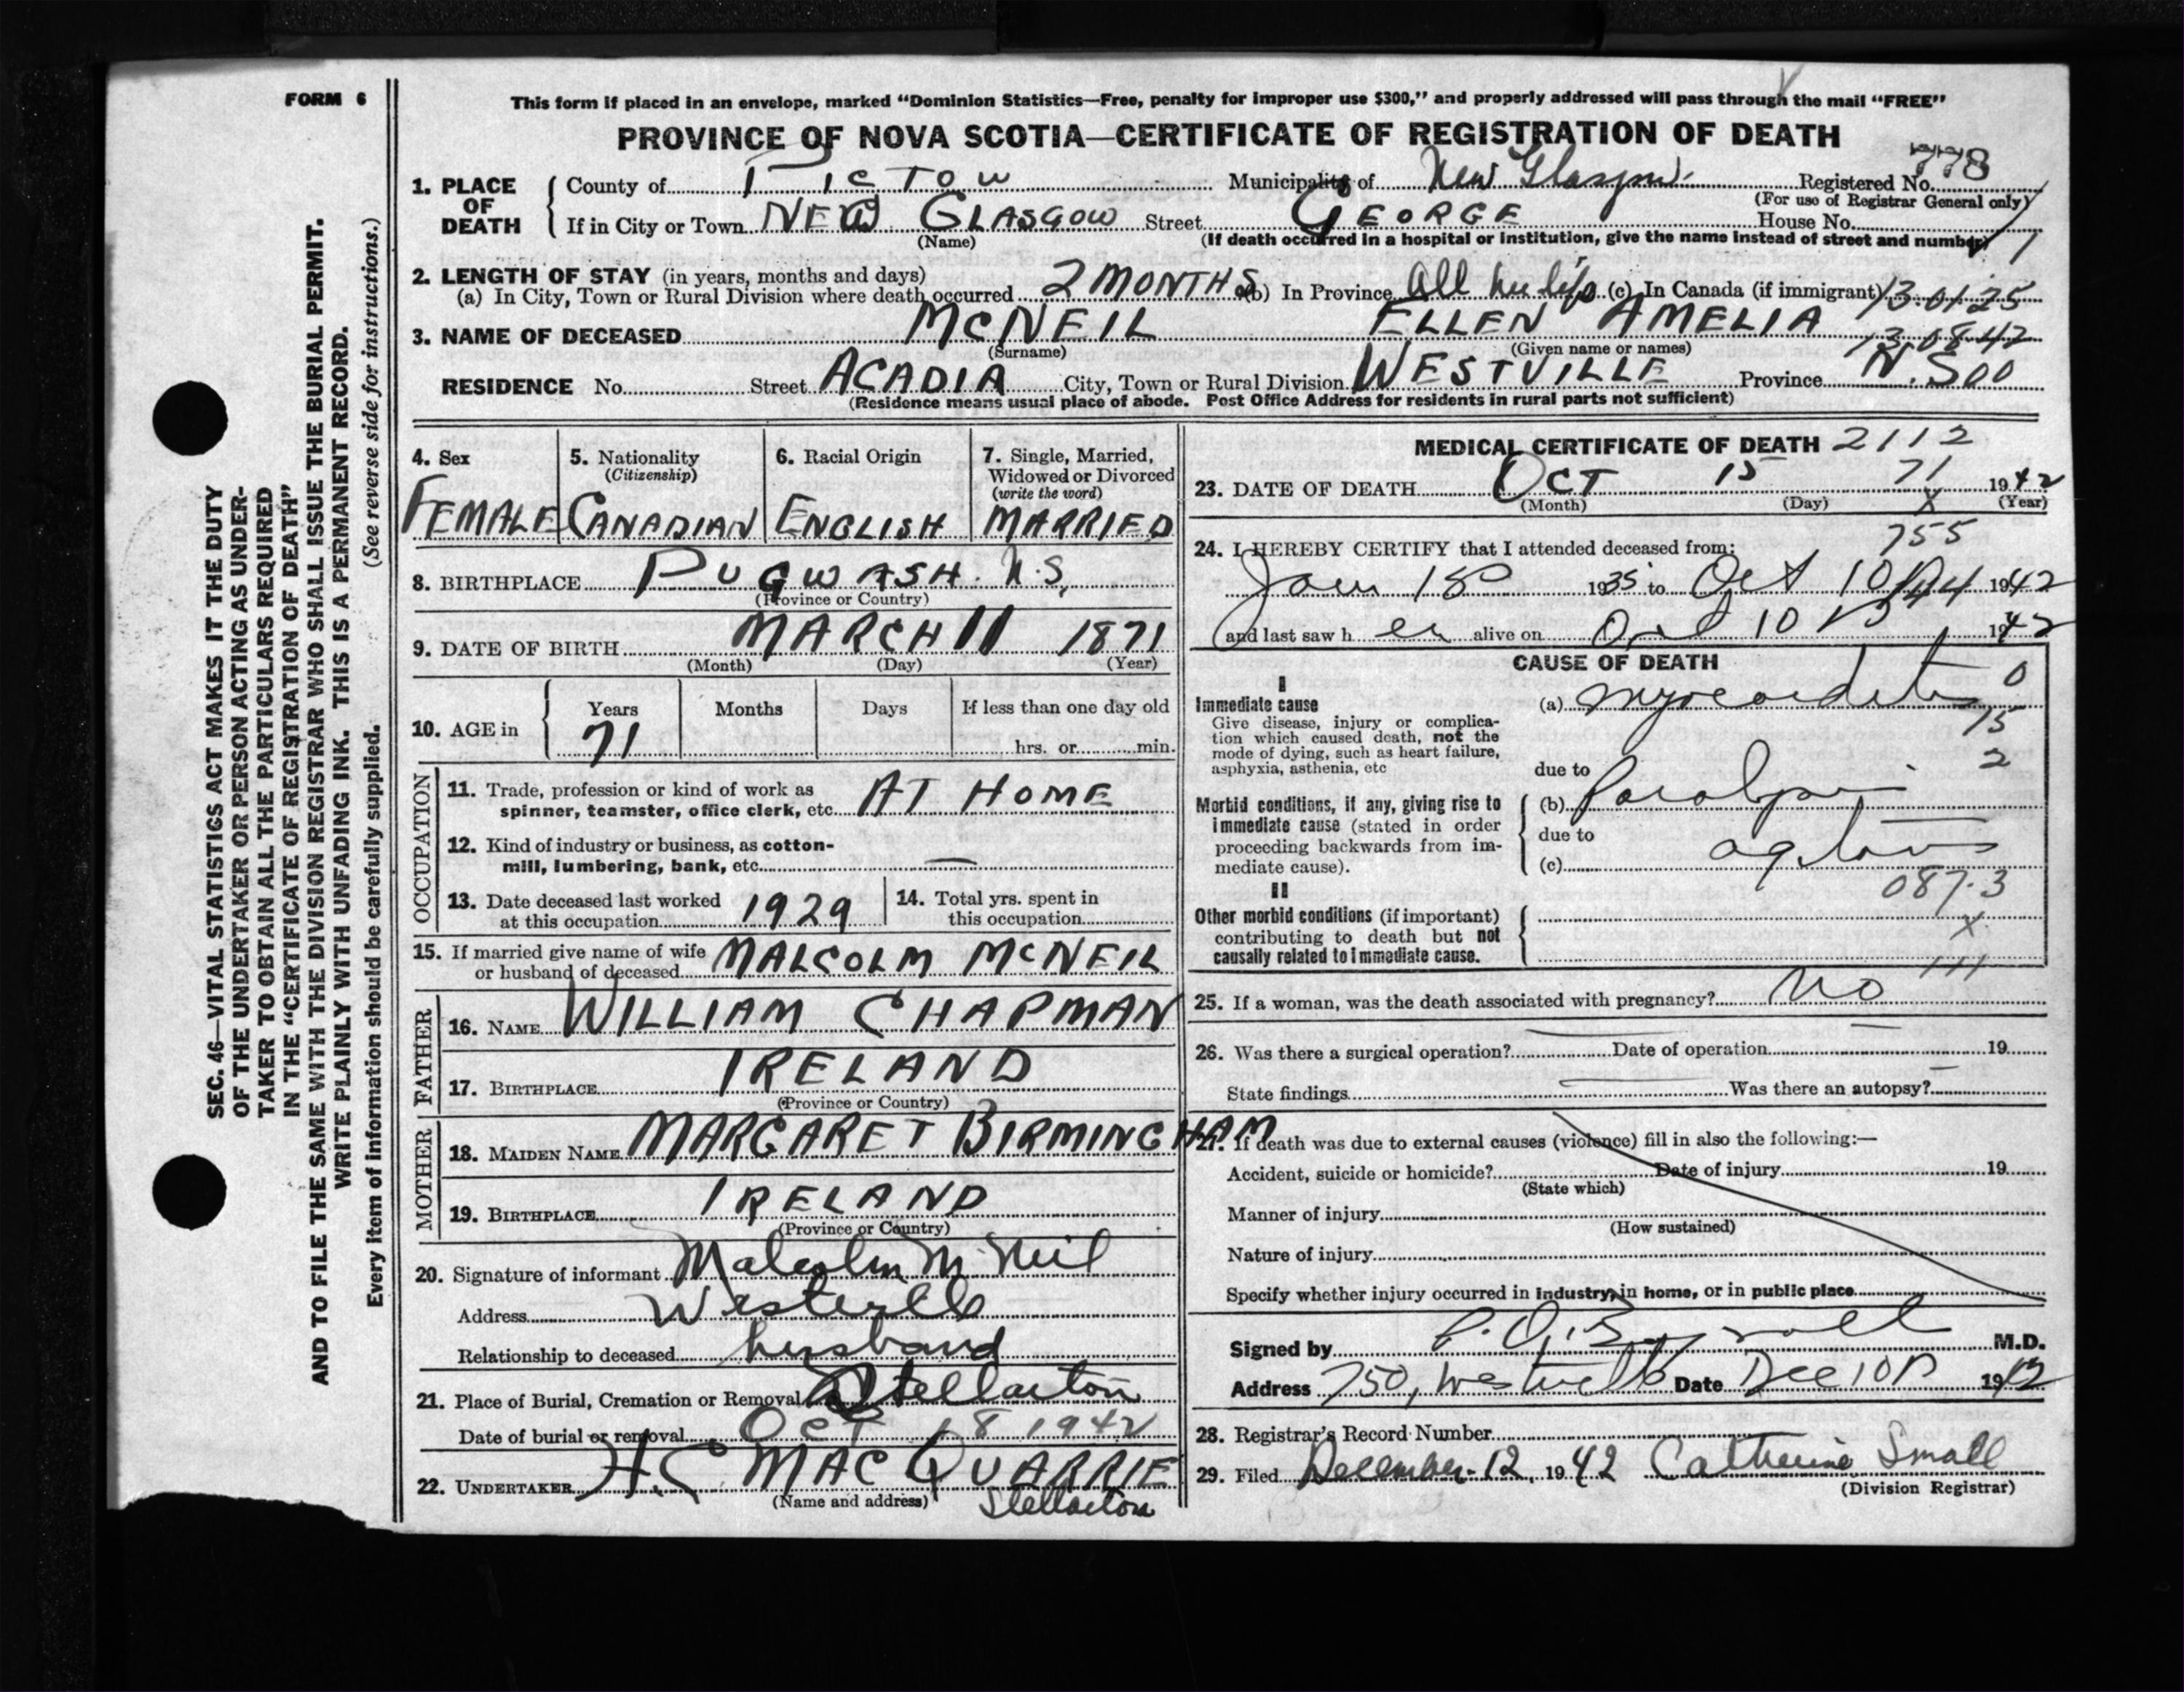 FORM 6
This form if placed in an envelope, marked “Dominion Statistics—Free, penalty for improper use $300,” and properly addressed will pass through the mail “FREE”
PROVINCE OF NOVA SCOTIA—CERTIFICATE OF REGISTRATION OF DEATH
778
1. PLACE OF DEATH
County of PICTOU Municipality of New Glasgow Registered No.
(For use of Registrar General only)
If in City or Town NEW GLASGOW Street GEORGE House No.
(Name) (If death occurred in a hospital or institution, give the name instead of street and number)
2. LENGTH OF STAY (in years, months and days)
(a) In City, Town or Rural Division where death occurred 2 MONTHS (b) In Province All her life (c) In Canada (if immigrant) 13.01.25
3. NAME OF DECEASED MCNEIL ELLEN AMELIA 13.08.42
(Surname) (Given name or names)
RESIDENCE No. Street ACADIA City, Town or Rural Division WESTVILLE Province N.S 00
(Residence means usual place of abode. Post Office Address for residents in rural parts not sufficient)
4. Sex
FEMALE
5. Nationality
(Citizenship)
CANADIAN
6. Racial Origin
ENGLISH
7. Single, Married,
Widowed or Divorced
(write the word)
MARRIED
8. BIRTHPLACE PUGWASH. N.S,
(Province or Country)
9. DATE OF BIRTH MARCH 11 1871
(Month) (Day) (Year)
10. AGE in
Years Months Days If less than one day old
71 hrs. or min.
OCCUPATION
11. Trade, profession or kind of work as
spinner, teamster, office clerk, etc. AT HOME
12. Kind of industry or business, as cotton-
mill, lumbering, bank, etc. —
13. Date deceased last worked
at this occupation 1929
14. Total yrs. spent in
this occupation
15. If married give name of wife
or husband of deceased MALCOLM MCNEIL
FATHER
16. NAME WILLIAM CHAPMAN
17. BIRTHPLACE IRELAND
(Province or Country)
MOTHER
18. MAIDEN NAME MARGARET BIRMINGHAM
19. BIRTHPLACE IRELAND
(Province or Country)
20. Signature of informant Malcolm McNeil
Address Westville
Relationship to deceased husband
21. Place of Burial, Cremation or Removal Stellarton
Date of burial or removal OCT 18 1942
22. UNDERTAKER H. C MACQUARRIE
(Name and address) Stellarton
MEDICAL CERTIFICATE OF DEATH 2112
71
23. DATE OF DEATH OCT 15 1942
(Month) (Day) X (Year)
755
24. I HEREBY CERTIFY that I attended deceased from:
1935 to Oct 10 44 1942
and last saw her alive on 10 1942
CAUSE OF DEATH
I
Immediate cause
Give disease, injury or complica-
tion which caused death, not the
mode of dying, such as heart failure,
asphyxia, asthenia, etc
(a) Myocarditis 0
15
due to 2
Morbid conditions, if any, giving rise to
immediate cause (stated in order
proceeding backwards from im-
mediate cause).
(b) Paralysis
due to
agitans
(c)
087.3
II
Other morbid conditions (if important)
contributing to death but not
causally related to immediate cause.
X
111
25. If a woman, was the death associated with pregnancy? No
26. Was there a surgical operation? — Date of operation — 19
State findings — Was there an autopsy? —
27. If death was due to external causes (violence) fill in also the following:—
Accident, suicide or homicide? Date of injury 19
(State which)
Manner of injury
(How sustained)
Nature of injury
Specify whether injury occurred in industry, in home, or in public place
Signed by M.D.
Address 750, Westville Date Dec 10 1942
28. Registrar's Record Number
29. Filed December 12, 1942 Catherine Small
(Division Registrar)
SEC. 46—VITAL STATISTICS ACT MAKES IT THE DUTY
OF THE UNDERTAKER OR PERSON ACTING AS UNDER-
TAKER TO OBTAIN ALL THE PARTICULARS REQUIRED
IN THE “CERTIFICATE OF REGISTRATION OF DEATH”
AND TO FILE THE SAME WITH THE DIVISION REGISTRAR WHO SHALL ISSUE THE BURIAL PERMIT.
WRITE PLAINLY WITH UNFADING INK. THIS IS A PERMANENT RECORD.
Every item of information should be carefully supplied. (See reverse side for instructions.)